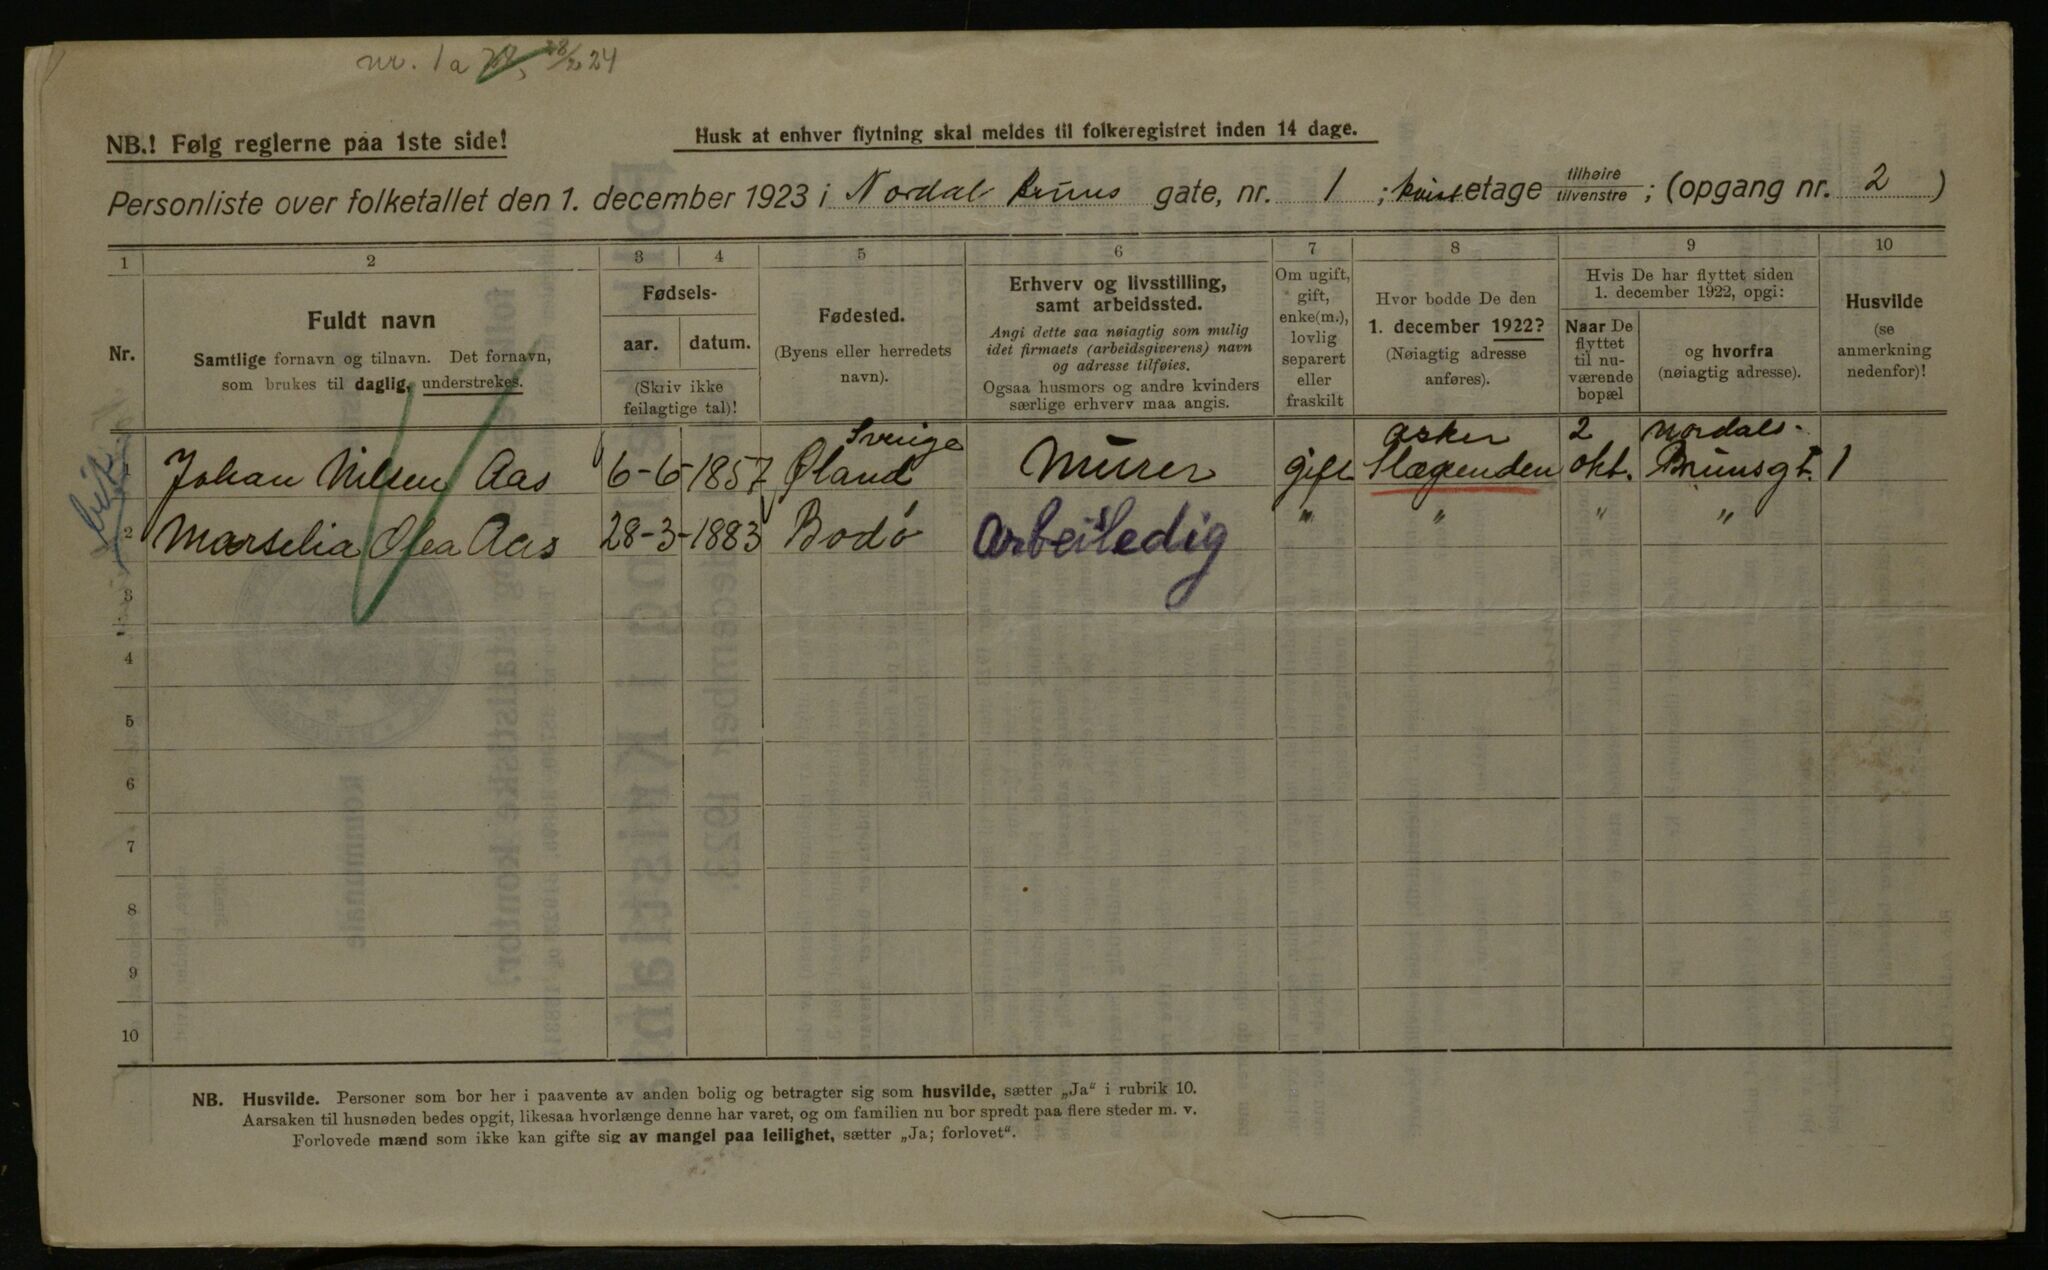 nr. 1a 28/2 24
NB.! Følg reglerne paa 1ste side!
Husk at enhver flytning skal meldes til folkeregistret inden 14 dage.
Personliste over folketallet den 1. december 1923 i Nordal Bruns gate, nr. 1 ; kvist etage tilhøire/tilvenstre ; (opgang nr. 2 )
1 2 3 4 5 6 7 8 9 10
Nr.
Fuldt navn
Samtlige fornavn og tilnavn. Det fornavn,
som brukes til daglig, understrekes.
Fødsels-
aar. datum.
(Skriv ikke
feilagtige tal)!
Fødested.
(Byens eller herredets
navn).
Erhverv og livsstilling,
samt arbeidssted.
Angi dette saa nøiagtig som mulig
idet firmaets (arbeidsgiverens) navn
og adresse tilføies.
Ogsaa husmors og andre kvinders
særlige erhverv maa angis.
Om ugift,
gift,
enke(m.),
lovlig
separert
eller
fraskilt
Hvor bodde De den
1. december 1922?
(Nøiagtig adresse
anføres).
Hvis De har flyttet siden
1. december 1922, opgi:
Naar De
flyttet
til nu-
værende
bopæl
og hvorfra
(nøiagtig adresse).
Husvilde
(se
anmerkning
nedenfor)!
Sverige Asker 2 Nordals-
1 Johan Nilsen Aas 6-6-1857 Øland Murer gift Slæpenden okt. Brunsgt. 1
2 Marselia Olea Aas 28-3-1883 Bodø Arbeisledig " " " "
3
4
5
6
7
8
9
10
NB. Husvilde. Personer som bor her i paavente av anden bolig og betragter sig som husvilde, sætter „Ja“ i rubrik 10.
Aarsaken til husnøden bedes opgit, likesaa hvorlænge denne har varet, og om familien nu bor spredt paa flere steder m. v.
Forlovede mænd som ikke kan gifte sig av mangel paa leilighet, sætter „Ja; forlovet“.